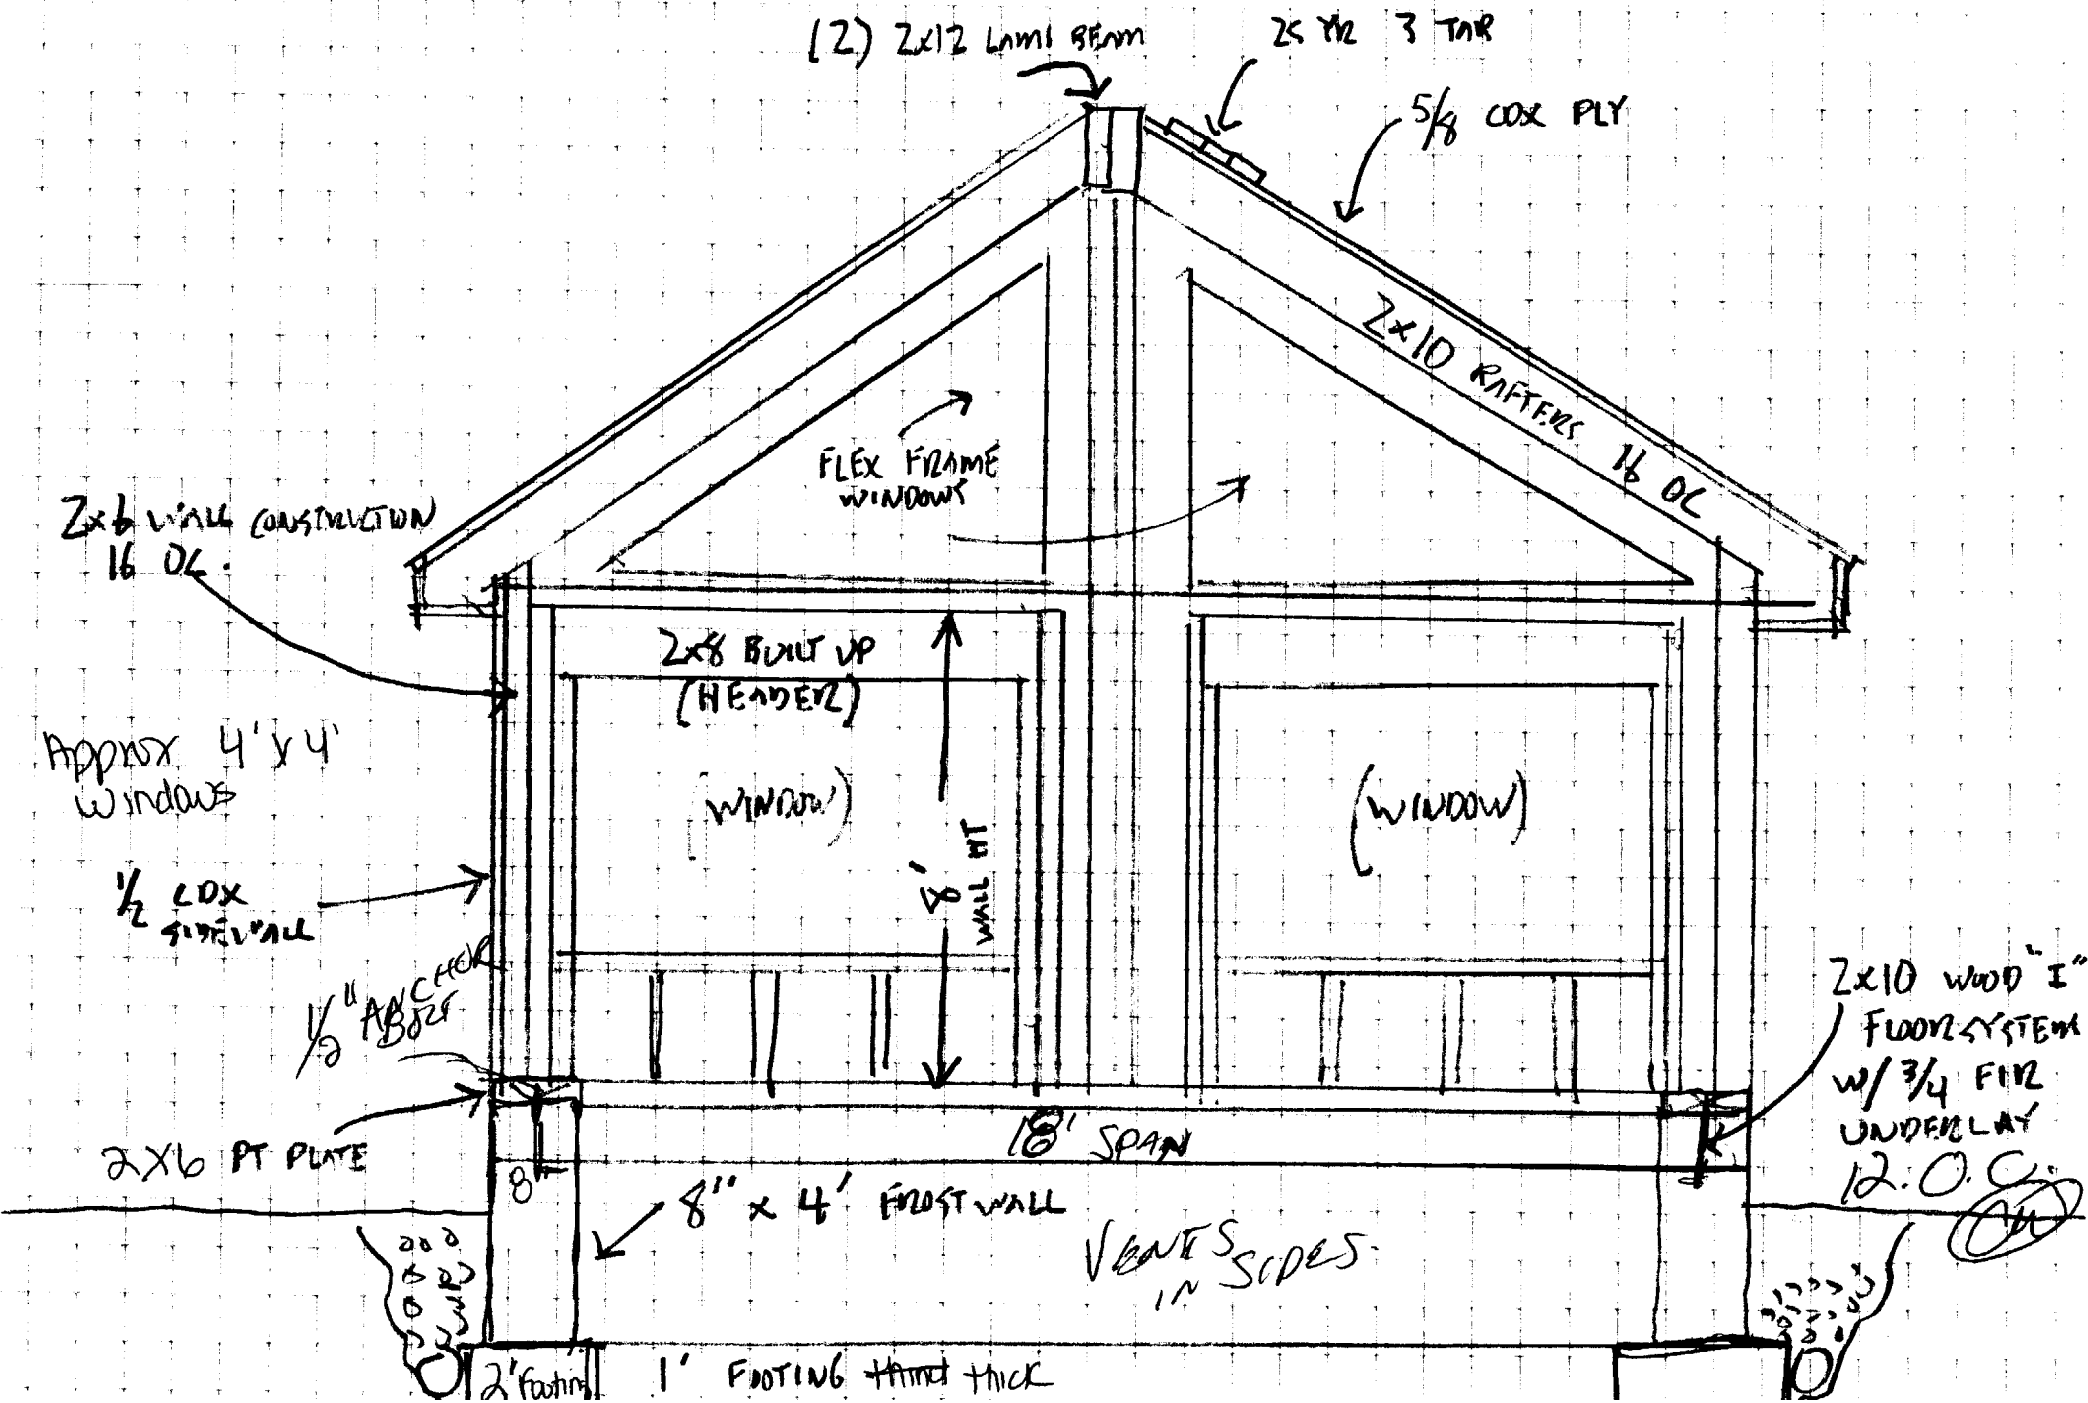 (2) 2x12 LAMI BEAM
25 YR 3 TAB
5/8 CDX PLY
2x10 RAFTERS 16 OC
FLEX FRAME
WINDOWS
2x6 WALL CONSTRUCTION
16 OC.
2x8 BUILT UP
(HEADER)
Approx 4' x 4'
windows
(WINDOW)
(WINDOW)
8'
WALL HT
1/2 CDX
SIDEWALL
1/2" ANCHOR
BOLT
2x10 WOOD "I"
FLOOR SYSTEM
W/ 3/4 FIR
UNDERLAY
12. O.C.
18' SPAN
2X6 PT PLATE
8
8" x 4' FROST WALL
VENTS
IN SIDES
2' Footing
1' FOOTING thick